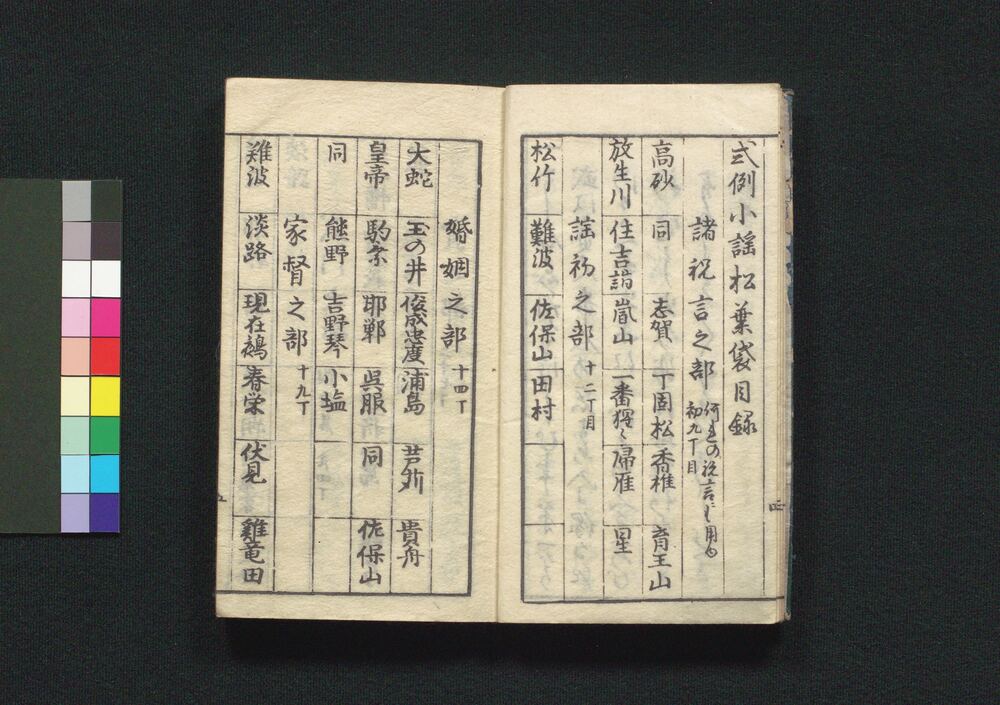 式例小謡松葉袋目録
諸祝言之部 何れの祝言ニも用ゆ 初九丁目
高砂 同 志賀 丁固松 香椎 育王山
放生川 住吉詣 嵐山 一番猩々 帰雁 星
謡初之部 十二丁目
松竹 難波 佐保山 田村
婚姻之部 十四丁
大蛇 玉の井 俊成忠度 浦島 芦刈 貴舟
皇帝 駒 邯鄲 呉服 同 佐保山
同 熊野 吉野琴 小塩
家督之部 十九丁
難波 淡路 現在鵺 春栄 伏見 雞竜田